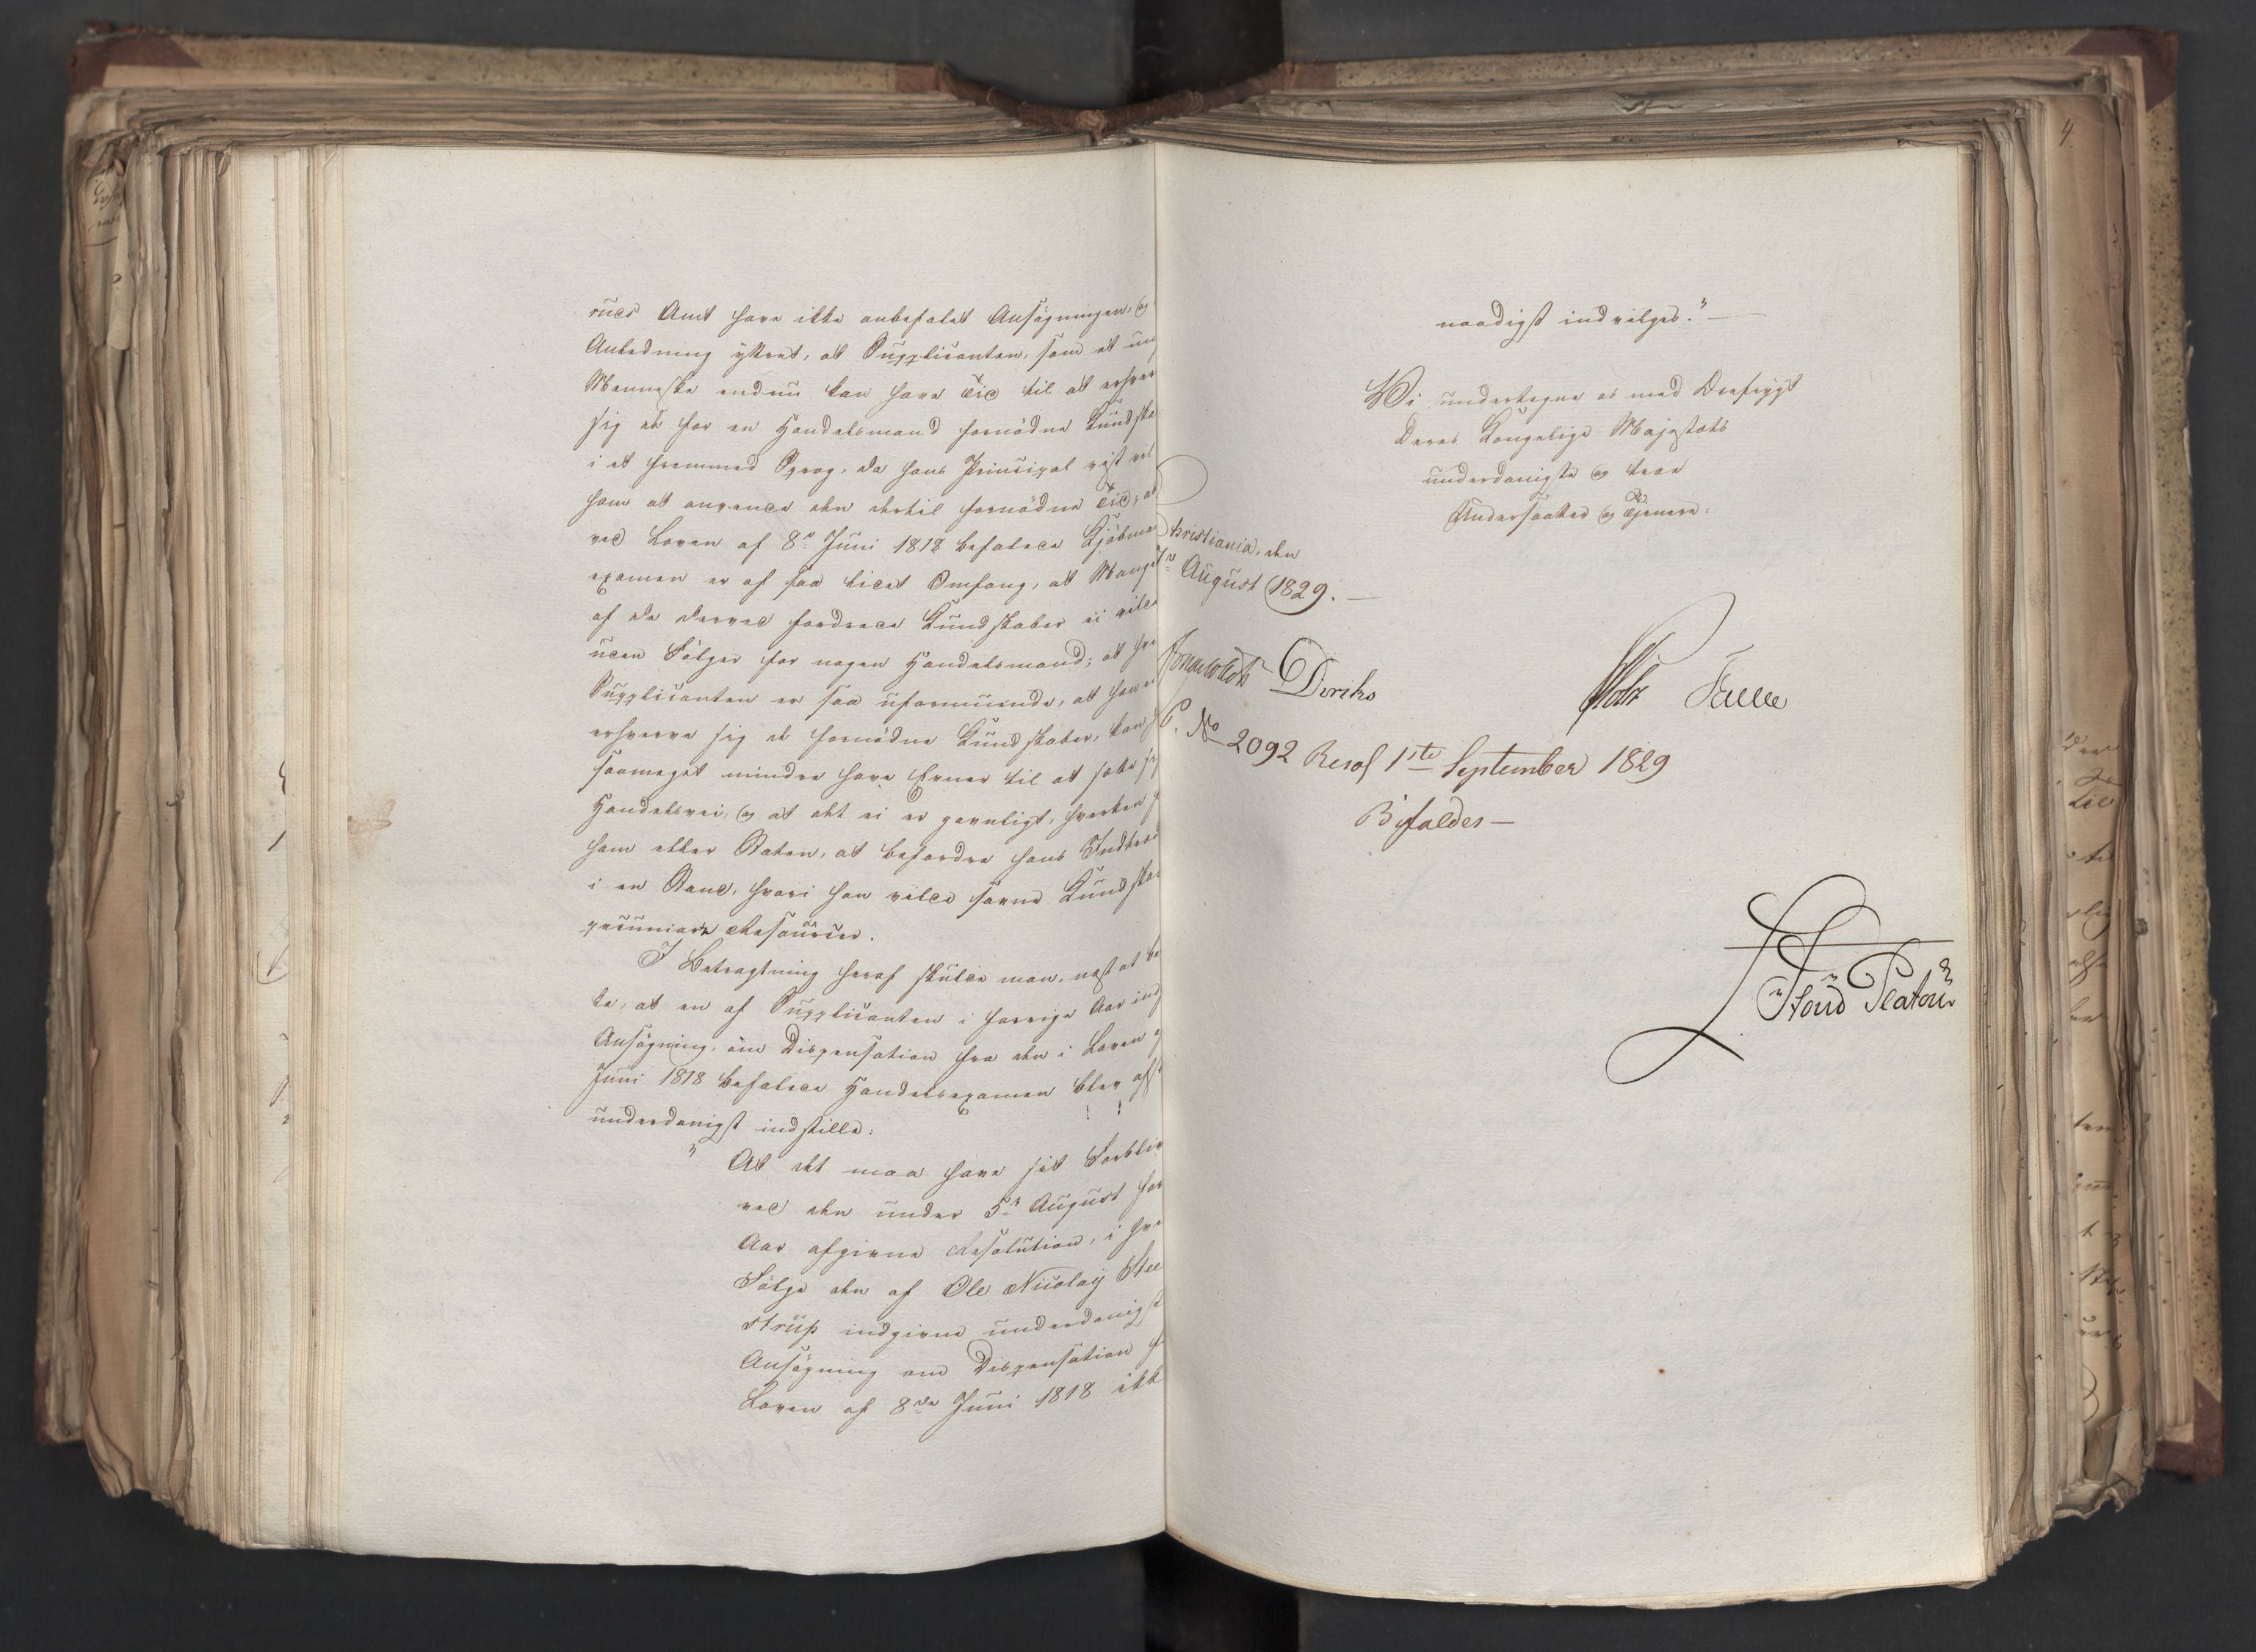 ruds Amt have ikke anbefalet Ansøgningen, og
Anledning yttret, at Supplicanten, som et un
Menneske endnu kan have Tid til at erhver
sig de for en Handelsmand fornødne Kundska
i et fremmed Sprog, da hans Principal vist vil
ham at anvende den dertil fornødne Tid, at
ved Loven af 8de Juni 1818 befalede Kjøbma
examen er af saa lidet Omfang, at Mangel
af de derved fordrede Kundskaber ei vilde
uden Følger for nogen Handelsmand; at hvi
Supplicanten er saa uformuende, at han ei
erhverve sig de fornødne Kundskaber, kan h
saameget mindre have Evner til at sætte si
Handelsvei, og at det ei er gavnligt, hverken f
ham eller Staten, at befordre hans Indtræd
i en Stand, hvori han vilde savne Kundska
pecuniaire Resourcer.
I Betragtning heraf skulde man, næst at be
ke, at en af Supplicanten i forrige Aar ind
Ansøgning, om Dispensation fra den i Loven
Juni 1818 befalede Handelsexamen blev afs
underdanigst indstille:
" At det maa have sit Forbliv
ved den under 5te August for
Aar afgivne Resolution, i hvi
Følge den af Ole Nicolay Stee
strup indgivne underdanigst
Ansøgning om Dispensation f
Loven af 8de Juni 1818 ikk
naadigst indvilges."—
Vi undertegne os med Dybfrygt
Deres Kongelige Majestæts
underdanigste og troe
Undersaatter og Tjenere.
Christiania, den
August 1829.—
Diriks
Holst
No 2092 Resol 1ste September 1829
Bifaldes—
Platou